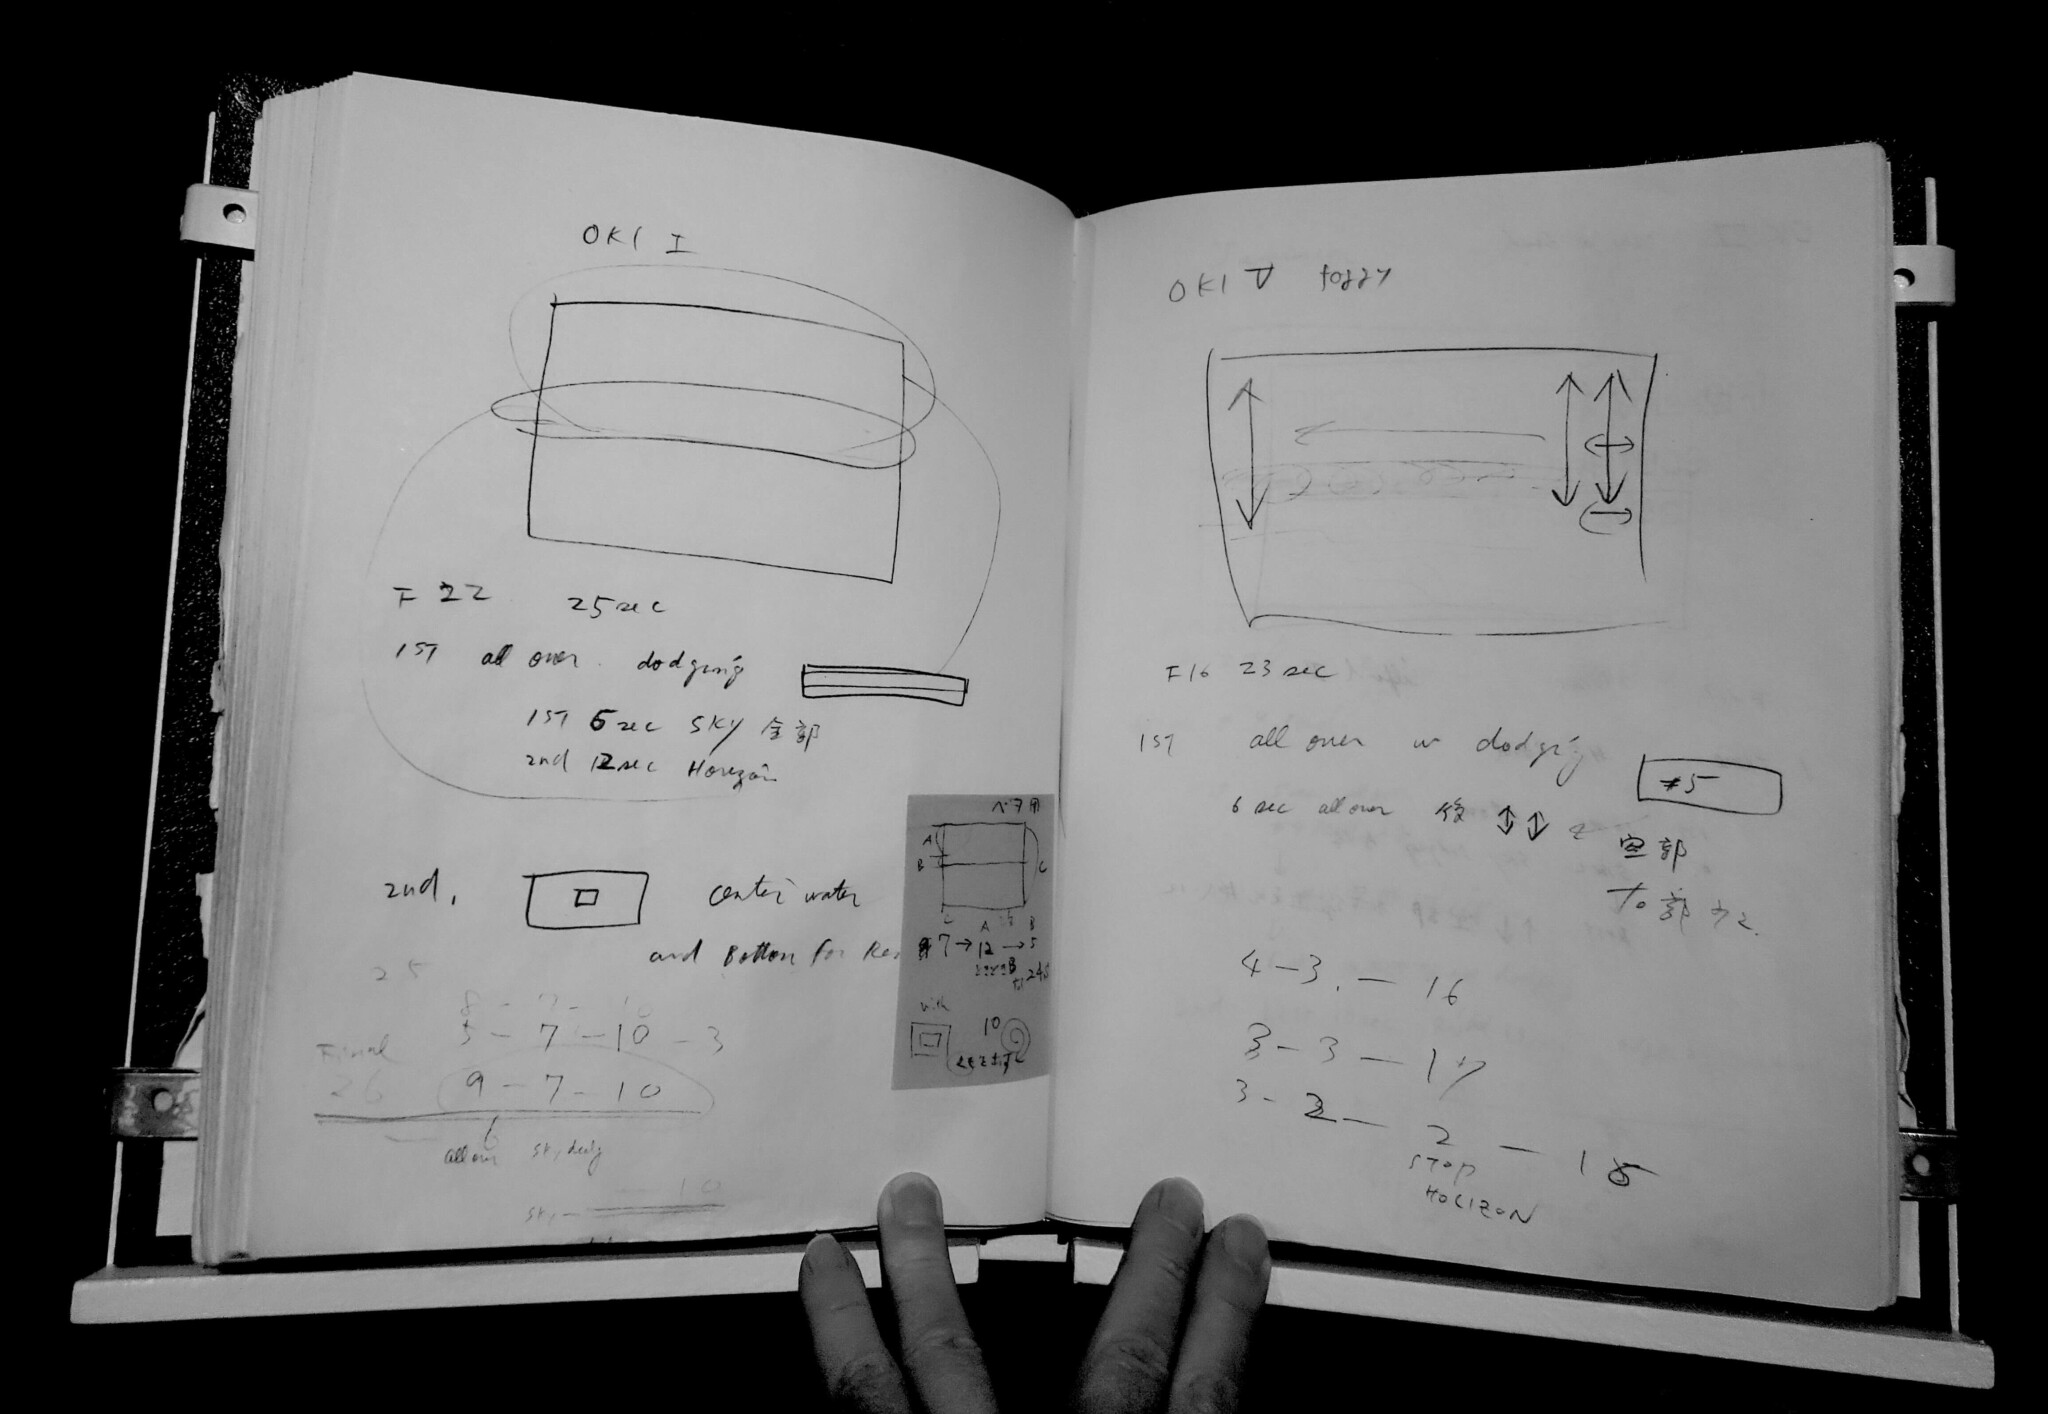 OKI I
F 22 25 sec
1ST all over dodging
1ST 6 sec SKY 全部
2nd 12 sec Horizon
2nd. center water
and Bottom for
25
8 - 7 - 10
5 - 7 - 10 - 3
Final
26 9 - 7 - 10
all over sky
- 10
sky -
ペア用
A
B C
C A B
7 → 12 → 5
B
with
10
OKI V foggy
F16 23 sec
1ST all over w dodging
#5
6 sec all over 後 ↕ ↕
右部
4 - 3. - 16
3 - 3 - 17
3 - 2 - 2 - 15
STOP
HOLIZON